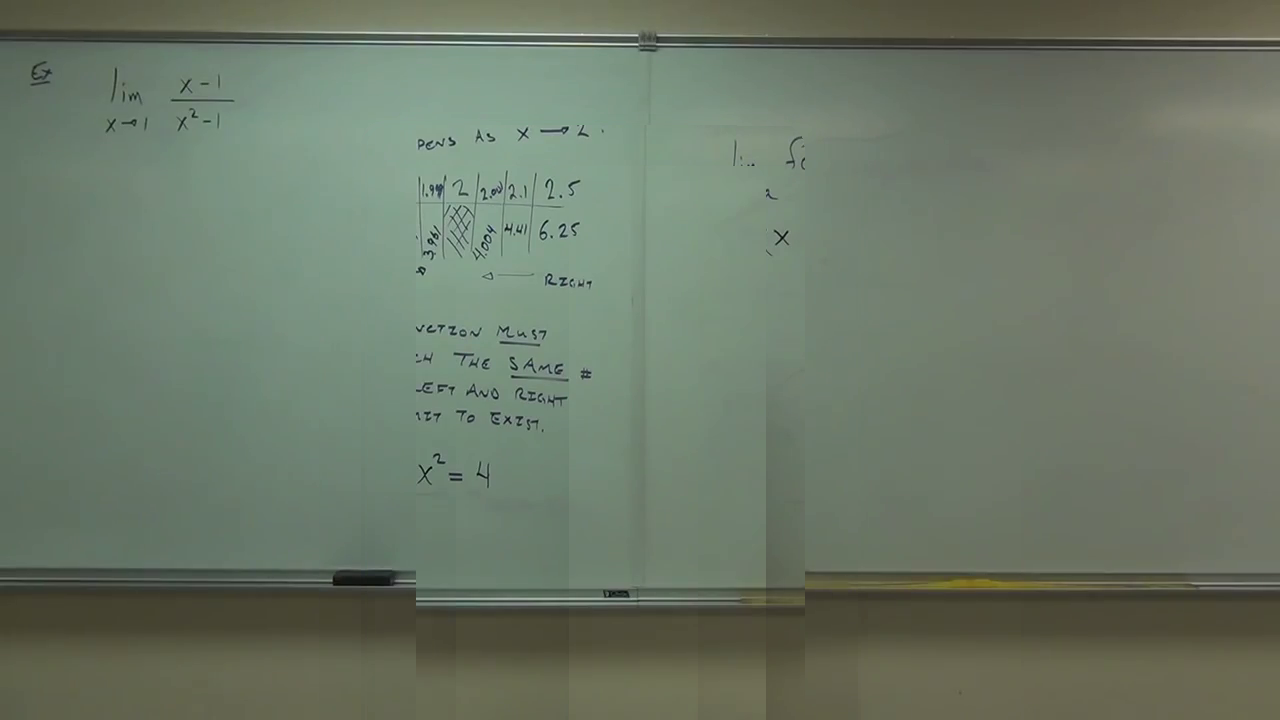 Ex lim x→1 x-1 / x²-1
PENS AS X → 2.
1.99 | 2 | 2.00 | 2.1 | 2.5
3.961 | 4.004 | 4.41 | 6.25
RIGHT
MUST
THE SAME #
AND RIGHT
TO EXIST.
x² = 4
x